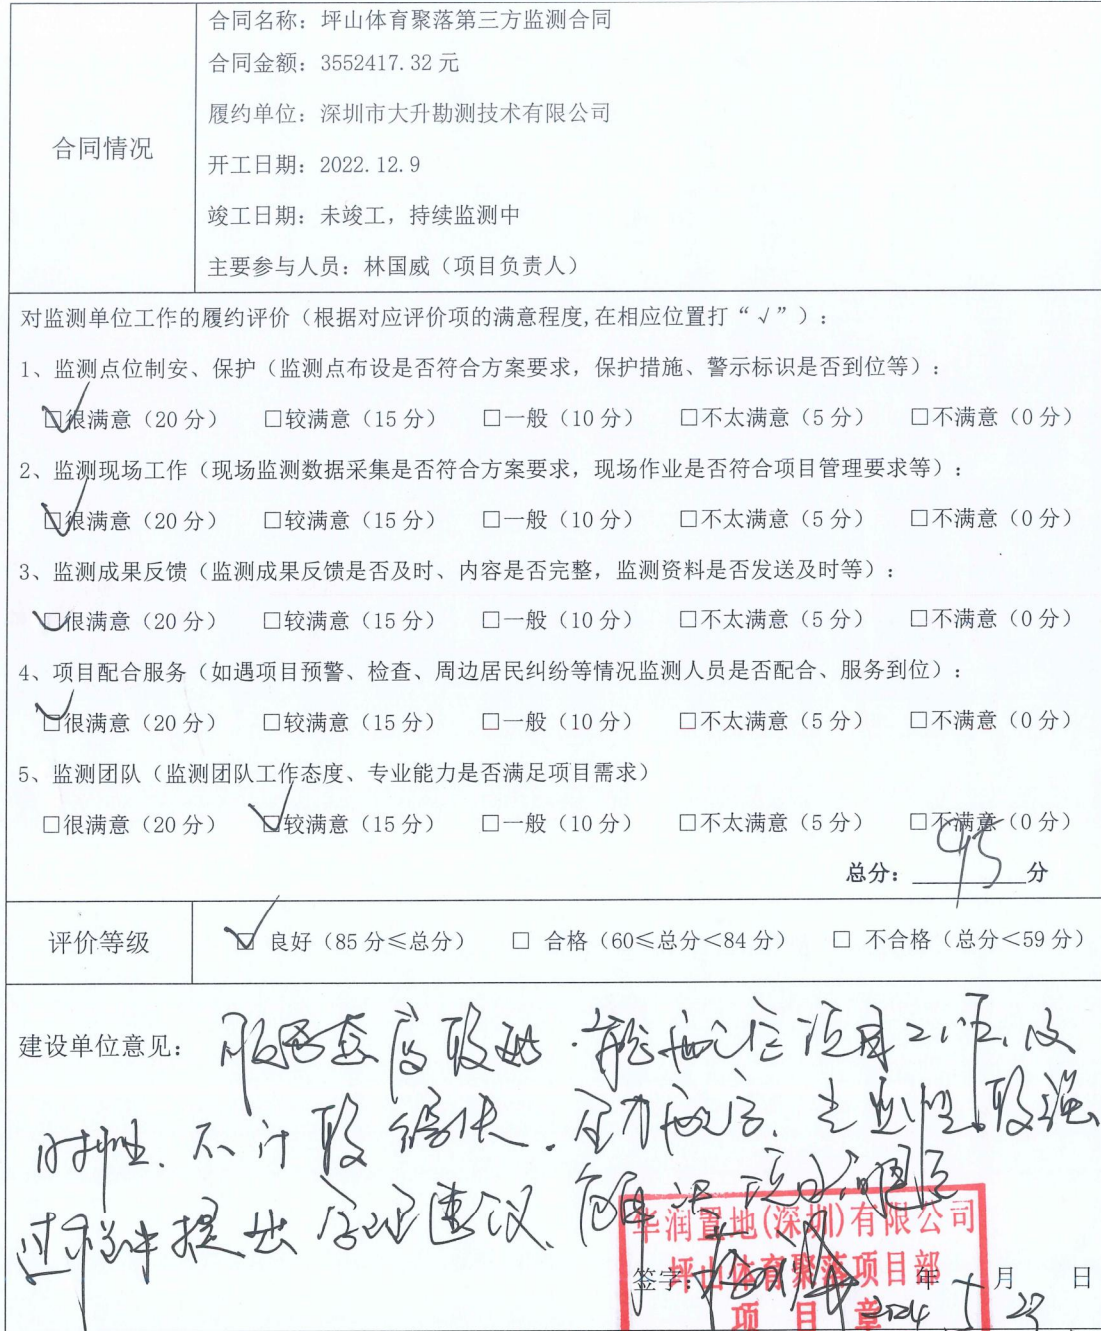 合同情况
合同名称：坪山体育聚落第三方监测合同
合同金额：3552417.32 元
履约单位：深圳市大升勘测技术有限公司
开工日期：2022.12.9
竣工日期：未竣工，持续监测中
主要参与人员：林国威（项目负责人）
对监测单位工作的履约评价（根据对应评价项的满意程度,在相应位置打“√”）：
1、监测点位制安、保护（监测点布设是否符合方案要求，保护措施、警示标识是否到位等）：
☑很满意（20 分） □较满意（15 分） □一般（10 分） □不太满意（5 分） □不满意（0 分）
2、监测现场工作（现场监测数据采集是否符合方案要求，现场作业是否符合项目管理要求等）：
☑很满意（20 分） □较满意（15 分） □一般（10 分） □不太满意（5 分） □不满意（0 分）
3、监测成果反馈（监测成果反馈是否及时、内容是否完整，监测资料是否发送及时等）：
☑很满意（20 分） □较满意（15 分） □一般（10 分） □不太满意（5 分） □不满意（0 分）
4、项目配合服务（如遇项目预警、检查、周边居民纠纷等情况监测人员是否配合、服务到位）：
☑很满意（20 分） □较满意（15 分） □一般（10 分） □不太满意（5 分） □不满意（0 分）
5、监测团队（监测团队工作态度、专业能力是否满足项目需求）
□很满意（20 分） ☑较满意（15 分） □一般（10 分） □不太满意（5 分） □不满意（0 分）
总分：95分
评价等级 ☑ 良好（85 分≤总分） □ 合格（60≤总分＜84 分） □ 不合格（总分＜59 分）
建设单位意见：服务态度较好，能配合项目工作，及
时性、不计较得失，全力配合，专业性较强
过程中提出合理建议，解决项目问题
华润置地(深圳)有限公司
坪山体育聚落项目部
项目章
签字： 2024年5月27日